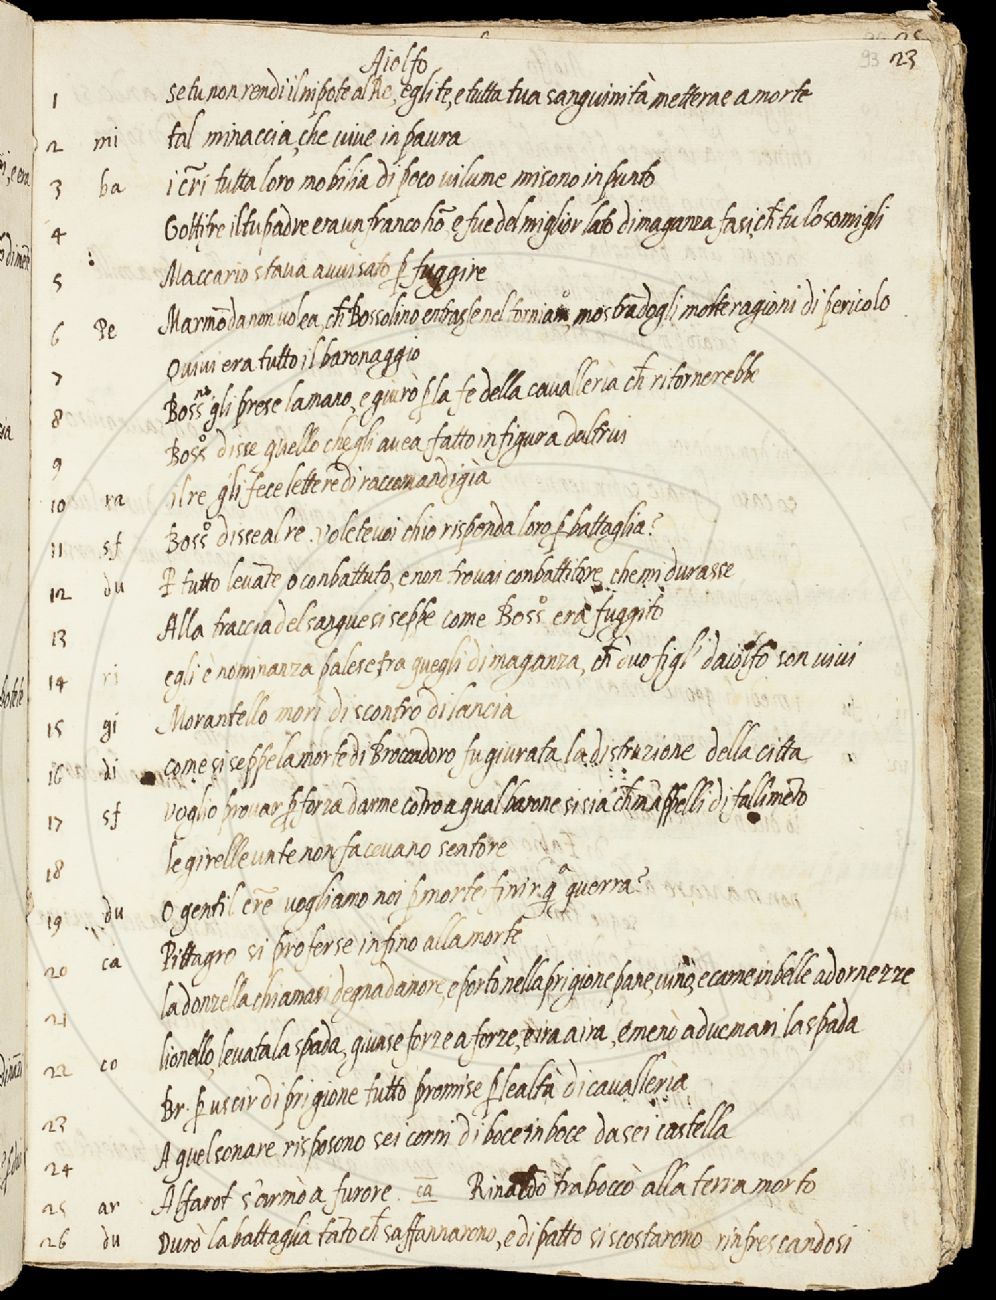 93 23
Aiolfo
1 se tu non rendi il nipote al Re, egli te, e tutta tua sanguinità metterae a morte
2 mi tal minaccia, che vive in paura
3 ba i cr̃i tutta loro mobilia di poco vilume misono in punto
4 Gottifre il tu padre era un franco hõ e fue del miglior lato di maganza fa sì, ch̃ tu lo somigli
5 Maccario stava avvisato p̱ fuggire
6 Pe Marmõda non volea, ch̃ Bossolino entrasse nel torniamº, mostrãdogli molte ragioni di pericolo
7 Quivi era tutto il baronaggio
8 Bossnº gli prese la mano, e giurò p̱ la fe della cavalleria ch̃ ritornerebbe
9 Bossº disse quello che gli avea fatto in figura daltrui
10 ra il re gli fece lettere di raccomandigia
11 sf Bossº disse al re. volete voi chio risponda loro p̱ battaglia?
12 du P̱ tutto levãte o conbattuto, e non trovai conbattitore, che mi durasse
13 Alla traccia del sangue si seppe come Bossº era fuggito
14 ri egli è nominanza palese tra quegli di maganza, ch̃ duo figli daiolfo son vivi
15 gi Morantello morì di scontro di lancia
16 di come si seppe la morte di Broccadoro fu giurata la distruzione della citta
17 sf voglio provar p̱ forza darme cõtro a qual barone si sia ch̃ mappelli di fallimẽto
18 le girelle unte non facevano sentore
19 du O gentil cr̃e vogliamo noi p̱ morte finir qa guerra?
20 ca Pittagro si proferse infino alla morte
21 la donzella chiamasi degna damore, e portò nella prigione pane, vino, e carne in belle adornezze
22 co lionello, levata la spada, giunse forze a forze, e ira a ira, e menò a due mani la spada
23 Br. p̱ uscir di prigione tutto promise p̱ lealtà di cavalleria
24 A quel sonare risposono sei corni di boce in boce da sei castella
25 ar Alfarot s'armò a furore. ca Rinaldo traboccò alla terra morto
26 du Durò la battaglia tãto ch̃ saffannarono, e di patto si scostarono rinfrescandosi